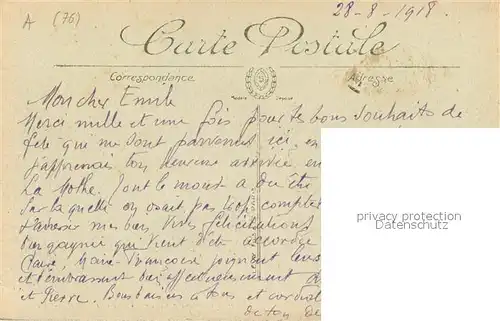 A (76)
28-8-1918
Carte Postale
Correspondance
Adresse
Mon cher Emile
Merci mille et une fois pour tes bons souhaits de
fête qui me sont parvenus ici, en
j'apprenais ton heureuse arrivée en
La Mothe. Dont le moust a dû être
sur laquelle on osait pas trop compter
mes bien vives félicitations
bien gagnée qui vient d'être accordée
Claire, Marie-Françoise joignent leurs
et t'embrassent bien affectueusement
et Pierre. Bons baisers à tous et cordial
de ton
privacy protection
Datenschutz